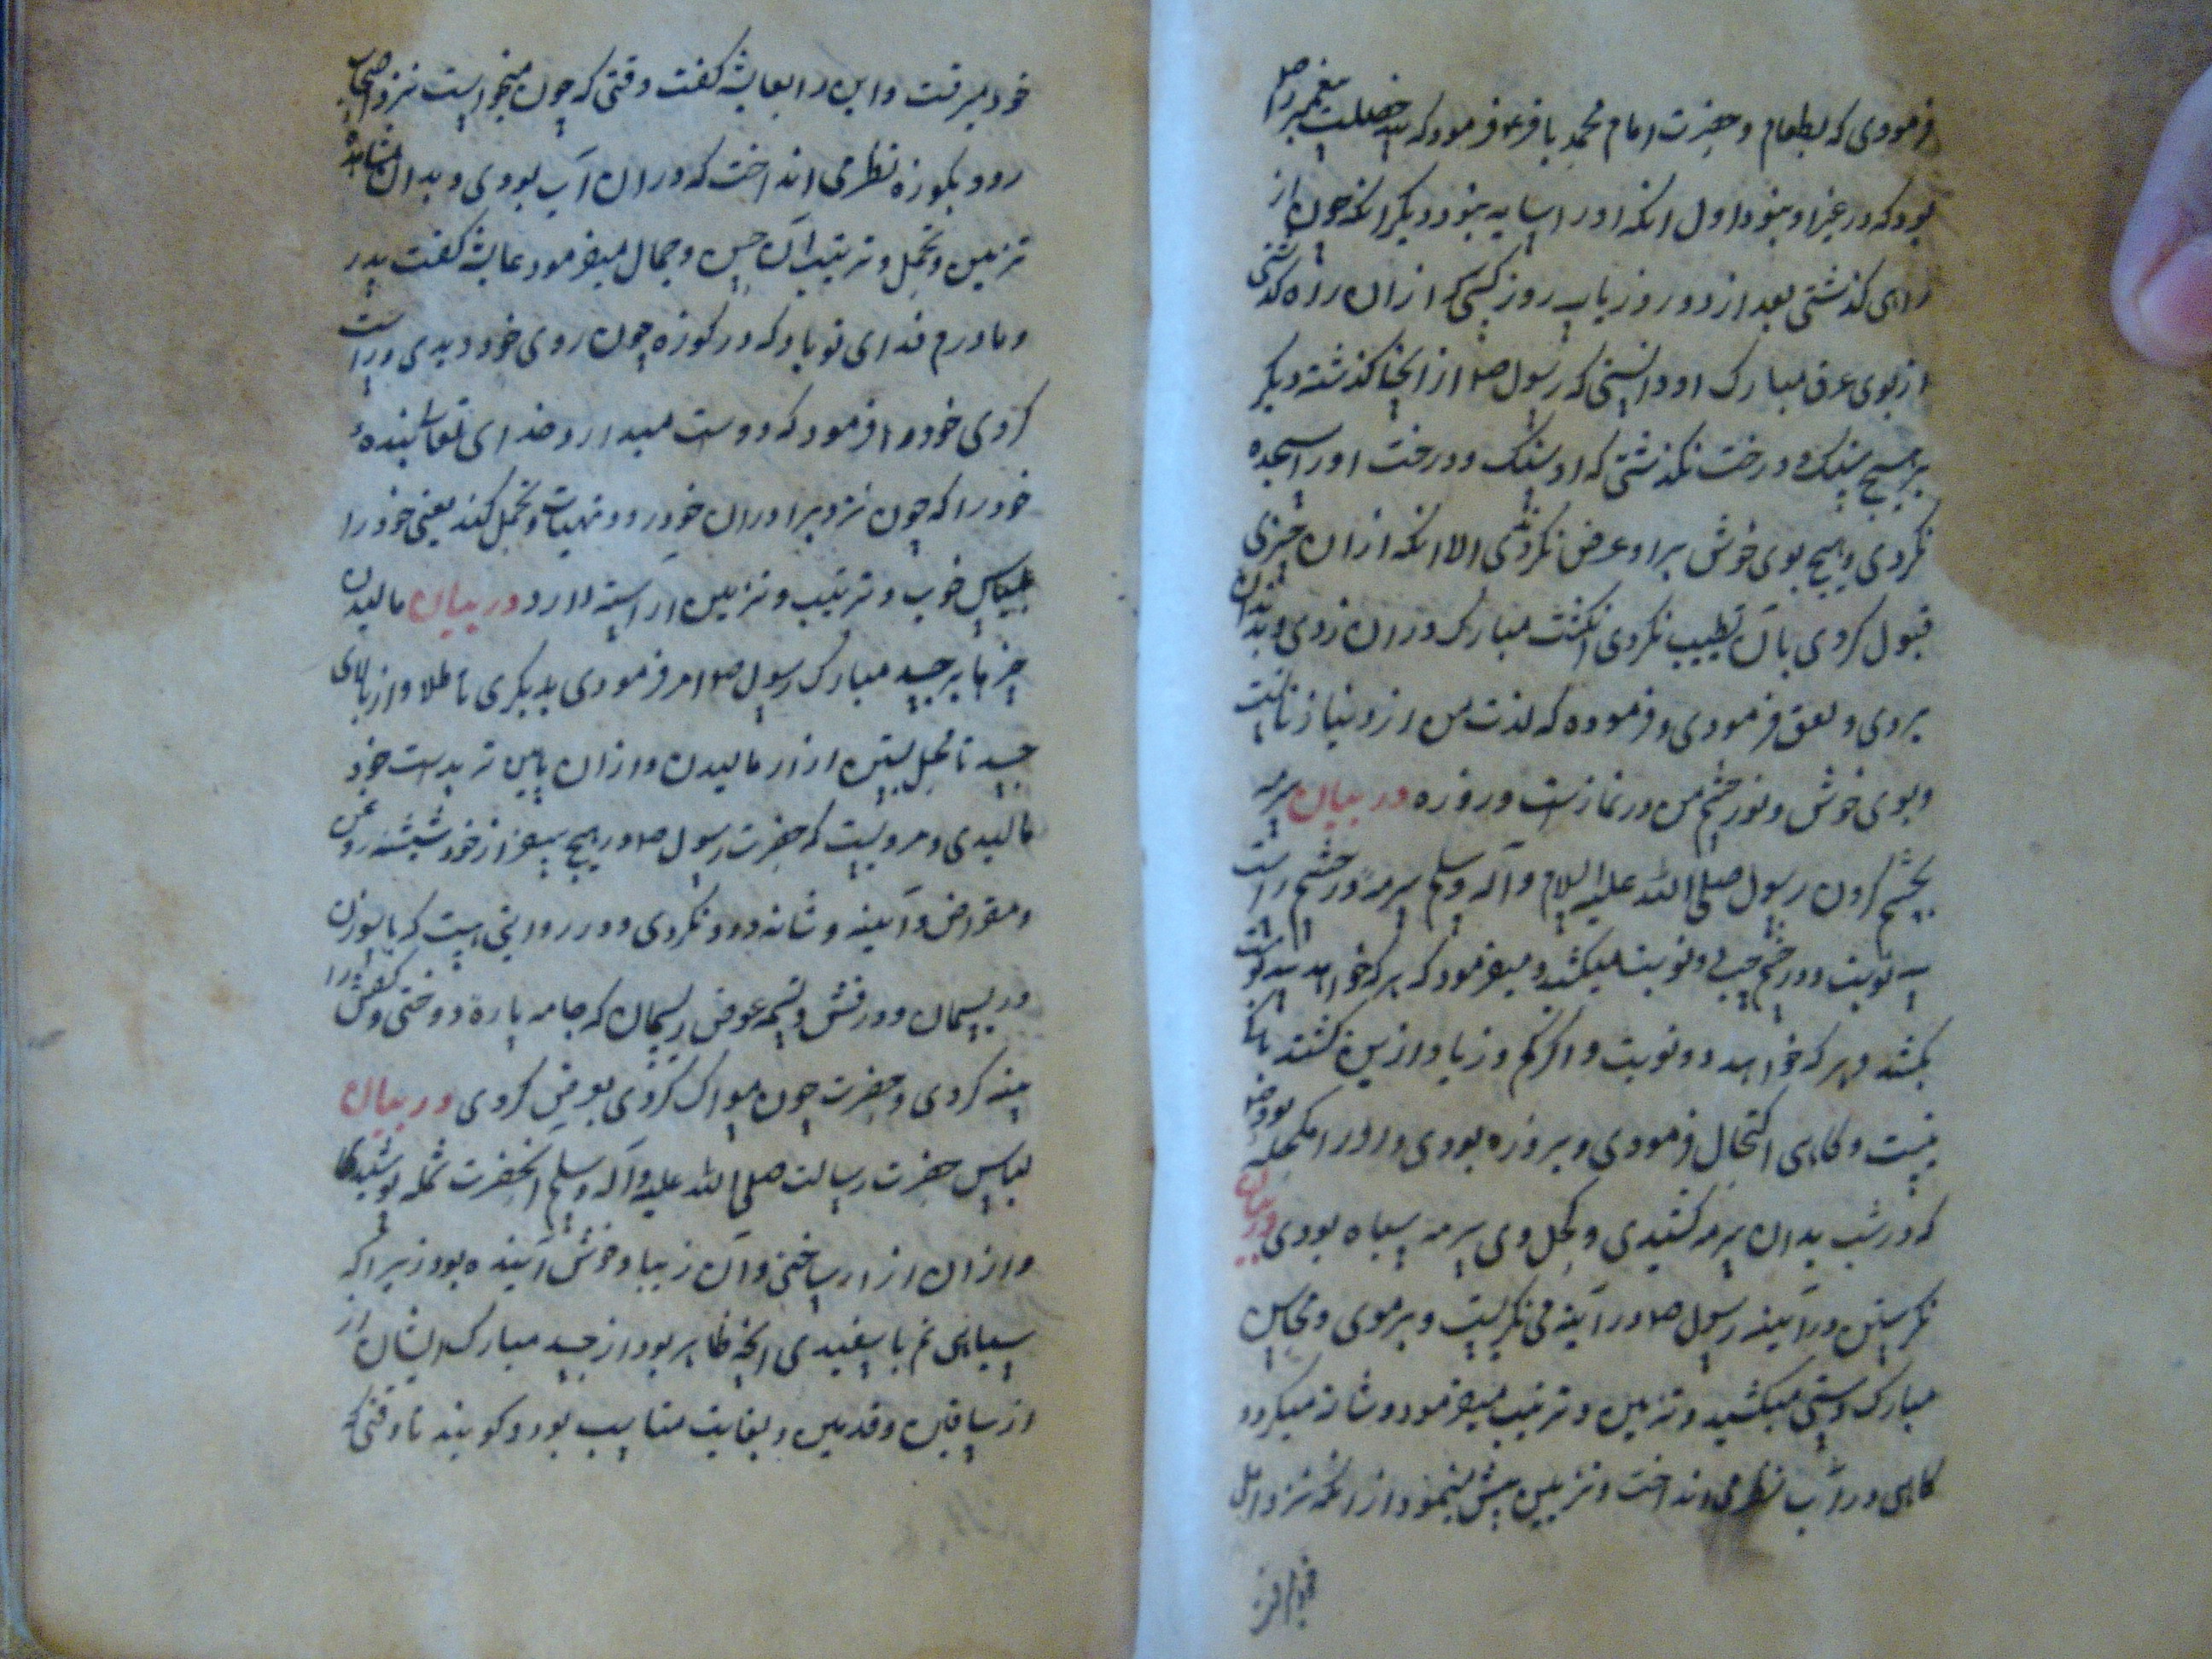 فرمودی که بطعام و حضرت امام محمد باقر ع فرمود که سه خصلت پیغمبر را ص
بود که در غیر او نبود اول انکه او را سایه نبود دیگر انکه چون از
راهی گذشتی بعد از دو روز یا سه روز کسی که از ان راه گذشتی
از بوی عرق مبارک او دانستی که رسول ص از اینجا گذشته دیگر
بر هیچ سنک و درخت نگذشتی که او سنک و درخت او را سجده
نکردی و هیچ بوی خوش بر او عرض نکردندی الا انکه از ان چیزی
قبول کردی یا آن تطییب نکردی انگشت مبارک در ان زدی و بدندان
بردی و لعق فرمودی و فرموده که لذت من از دنیا زنانست
و بوی خوش و نور چشم من در نماز است و روزه در بیان سرمه
بچشم کردن رسول صلی الله علیه السلام و آله و سلم سرمه در چشم راست
سه نوبت و در چشم چپ دو نوبت میکشید و میفرمود که هر که خواهد سه نوبت
بکشد و هر که خواهد دو نوبت و اگر کم و زیاد ازین کشند باکی
نیست و گاهی اکتحال فرمودی و بروزه بودی و او را مکحله بود
که در شب بدان سرمه کشیدی و کحل وی سرمه سیاه بودی در بیان
نکریستن در آیینه رسول ص در آیینه می نکریست و بر موی و محاسن
مبارک دستی میکشید و تزیین و ترتیب میفرمود و شانه میکرد و
گاهی در آب نظر می انداخت و تزیین پیش مینمود از انکه نزد اهل
خود میرفت و این را بعایشه گفت وقتی که چون میخواست نزد اصحاب
رود بکوزه نظر می انداخت که در ان آب بودی و بدان مشاهده
تزیین و تجمل و ترتیب آن حسن و جمال میفرمود عایشه گفت پدر
و مادرم فدای تو باد که در کوزه چون روی خود دیدی و راست
کردی خود را فرمود که دوست میدارد خدای تعالی بنده
خود را که چون نزد برادران خود رود تهیات و تجمل کند یعنی خود را
بلباس خوب و ترتیب و تزیین اراسته دارد در بیان مالیدن
چیزها بر جسد مبارک رسول ص امر فرمودی بدیکری تا طلا و از بالای
جسد تا محل بستن ازار مالیدن و از ان پایین تر بدست خود
مالیدی و مرویست که حضرت رسول ص در هیچ سفر از خود شیشه روغن
و مقراض و آیینه و شانه دور نکردی و در روایتی است که با سوزن
و ریسمان و درفش و تسمه عوض ریسمان که جامه پاره دوختی و کفش را
پینه کردی و حضرت چون مسواک کردی بعرض کردی در بیان
لباس حضرت رسالت صلی الله علیه و آله و سلم انحضرت شمله پوشیدی گاه
و از ان ازار ساختی و آن زیبا و خوش آینده بود زیرا که
سیاهی نم با سفیدی انچه ظاهر بود از جسد مبارک ایشان از
از ساقین و قدمین بغایت مناسب بود و کویند تا وقتی که